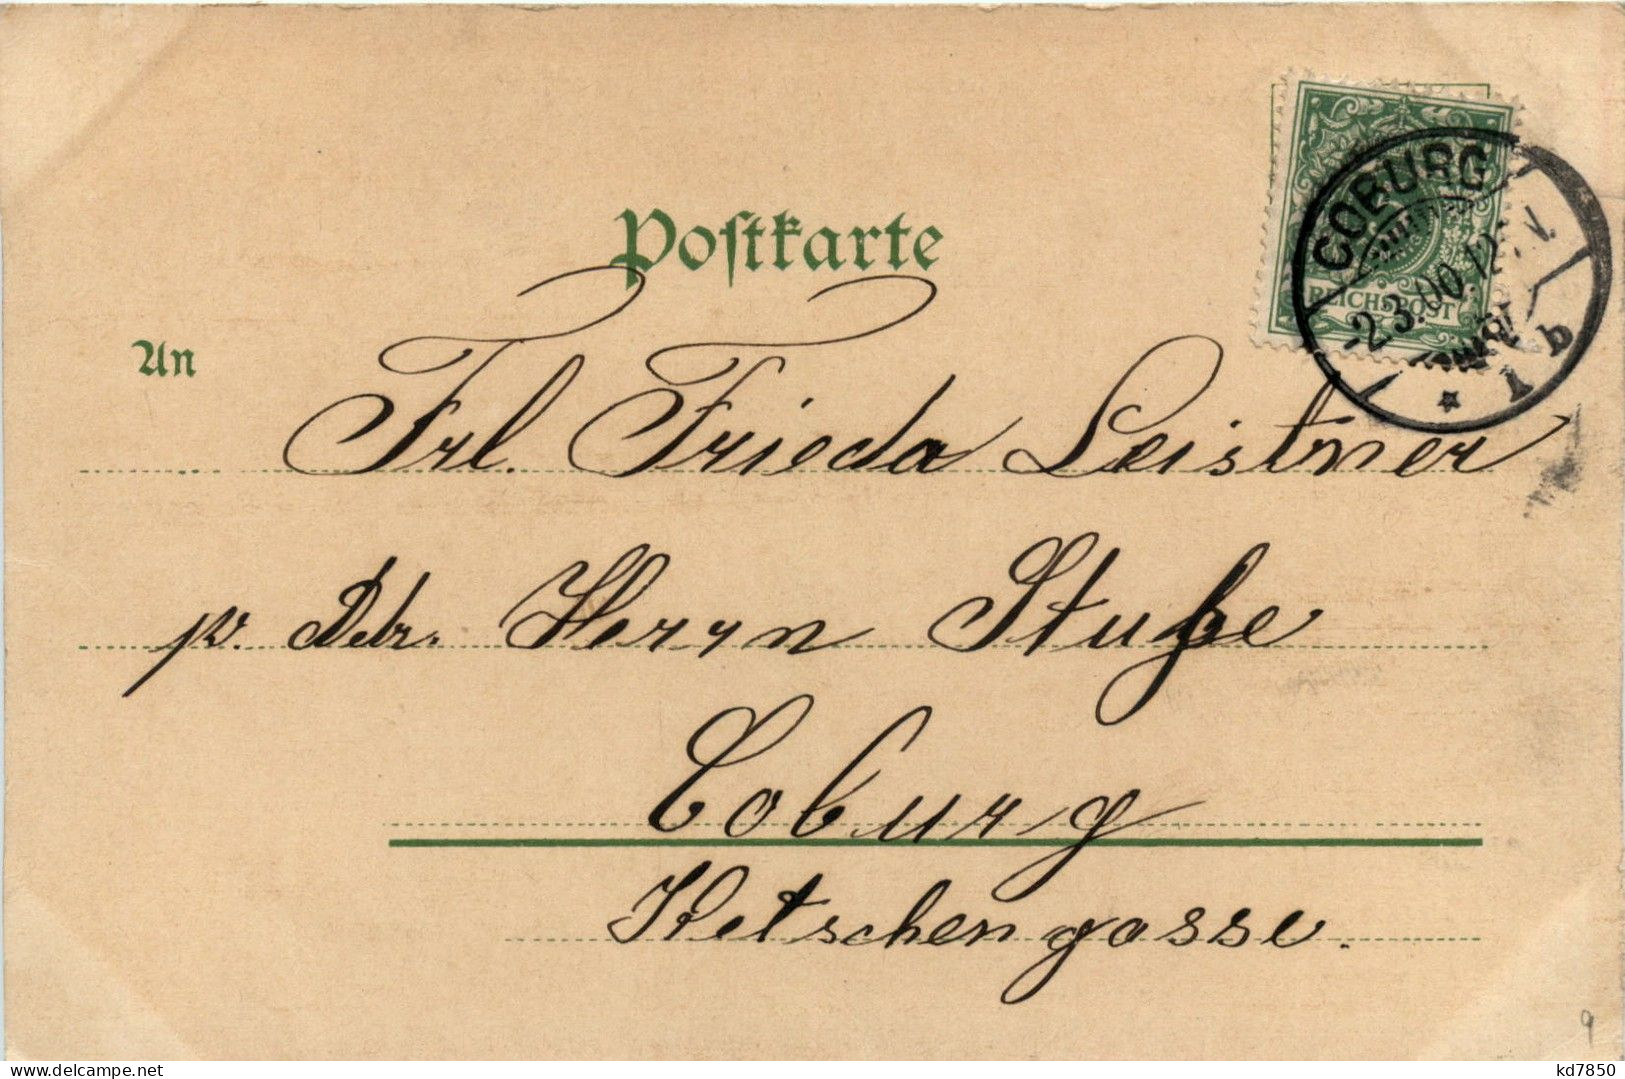 Postkarte
COBURG
-2.3.00.12-1N.
1 b
REICHSPOST
An
Frl. Frieda Leistner
p. Adr. Herrn Stuße
Coburg
Ketschengasse.
9
kd7850